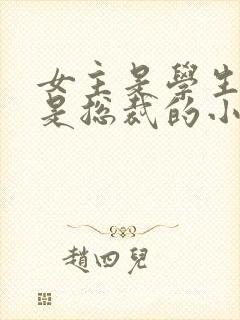 女主是學生
是総裁的小
趙四兒